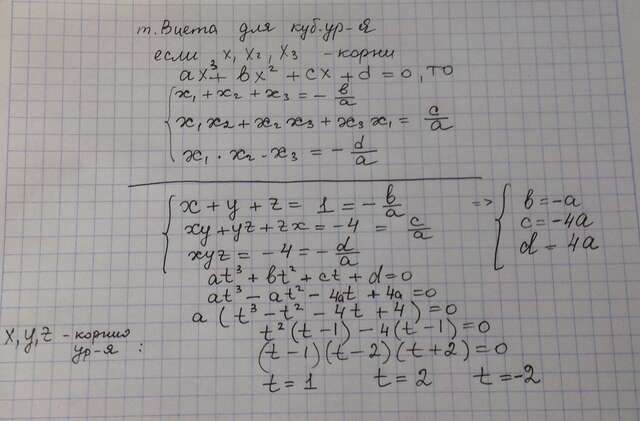 т. Виета для куб. ур-я
если x, x₂, x₃ - корни
ax³ + bx² + cx + d = 0, то
x₁ + x₂ + x₃ = - b/a
x₁x₂ + x₂x₃ + x₃x₁ = c/a
x₁ · x₂ · x₃ = - d/a
x + y + z = 1 = - b/a => b = -a
xy + yz + zx = -4 = c/a c = -4a
xyz = -4 = - d/a d = 4a
at³ + bt² + ct + d = 0
at³ - at² - 4at + 4a = 0
a (t³ - t² - 4t + 4) = 0
x, y, z - корни t² (t - 1) - 4(t - 1) = 0
ур-я : (t - 1)(t - 2)(t + 2) = 0
t = 1 t = 2 t = -2